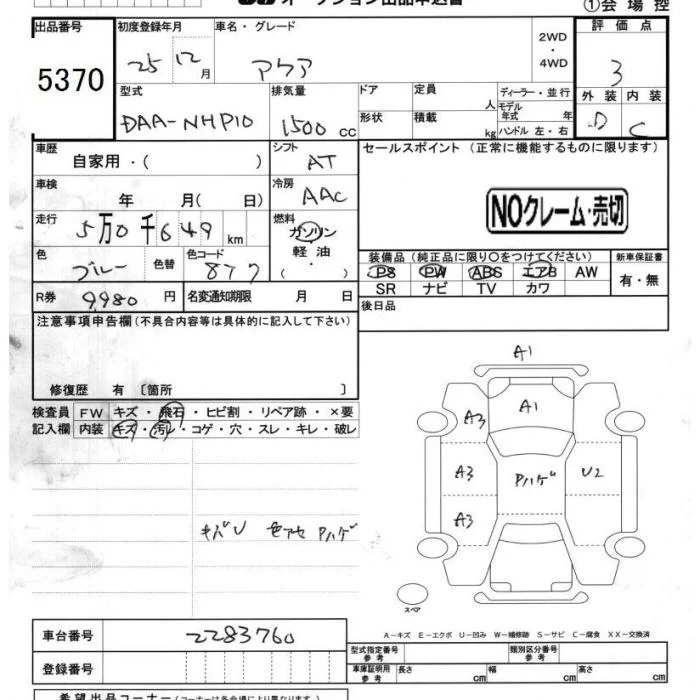 オークション出品申込書
①会場控
出品番号
5370
初度登録年月
25 12月
車名・グレード
アクア
2WD
・
4WD
評価点
3
外装 内装
D C
型式
DAA-NHP10
排気量
1500 cc
ドア
形状
定員
人
積載
kg
ディーラー・並行
モデル年式 年
ハンドル 左・右
車歴
自家用・( )
シフト
AT
セールスポイント (正常に機能するものに限ります)
NOクレーム・売切
車検
年 月( 日)
冷房
AAC
走行
5万0千649 km
燃料
ガソリン
軽油
( ・ )
色
ブルー
色替
色コード
877
装備品 (純正品に限り○をつけてください)
PS PW ABS エアB AW
SR ナビ TV カワ
新車保証書
有・無
R券
9,980 円
名変通知期限 月 日
後日品
注意事項申告欄(不具合内容等は具体的に記入して下さい)
修復歴 有 〔箇所 〕
検査員記入欄
FW キズ・飛石・ヒビ割・リペア跡・×要
内装 キズ・汚レ・コゲ・穴・スレ・キレ・破レ
キバU 色アセ Pハゲ
A1
A1
A3
A3
Pハゲ
U2
A3
スペア
A-キズ E-エクボ U-凹み W-補修跡 S-サビ C-腐食 XX-交換済
車台番号
2283760
登録番号
型式指定番号
参考
類別区分番号
参考
車庫証明用
参考
長さ cm
幅 cm
高さ cm
希望出品コーナー(コーナーは各会場により異なります)